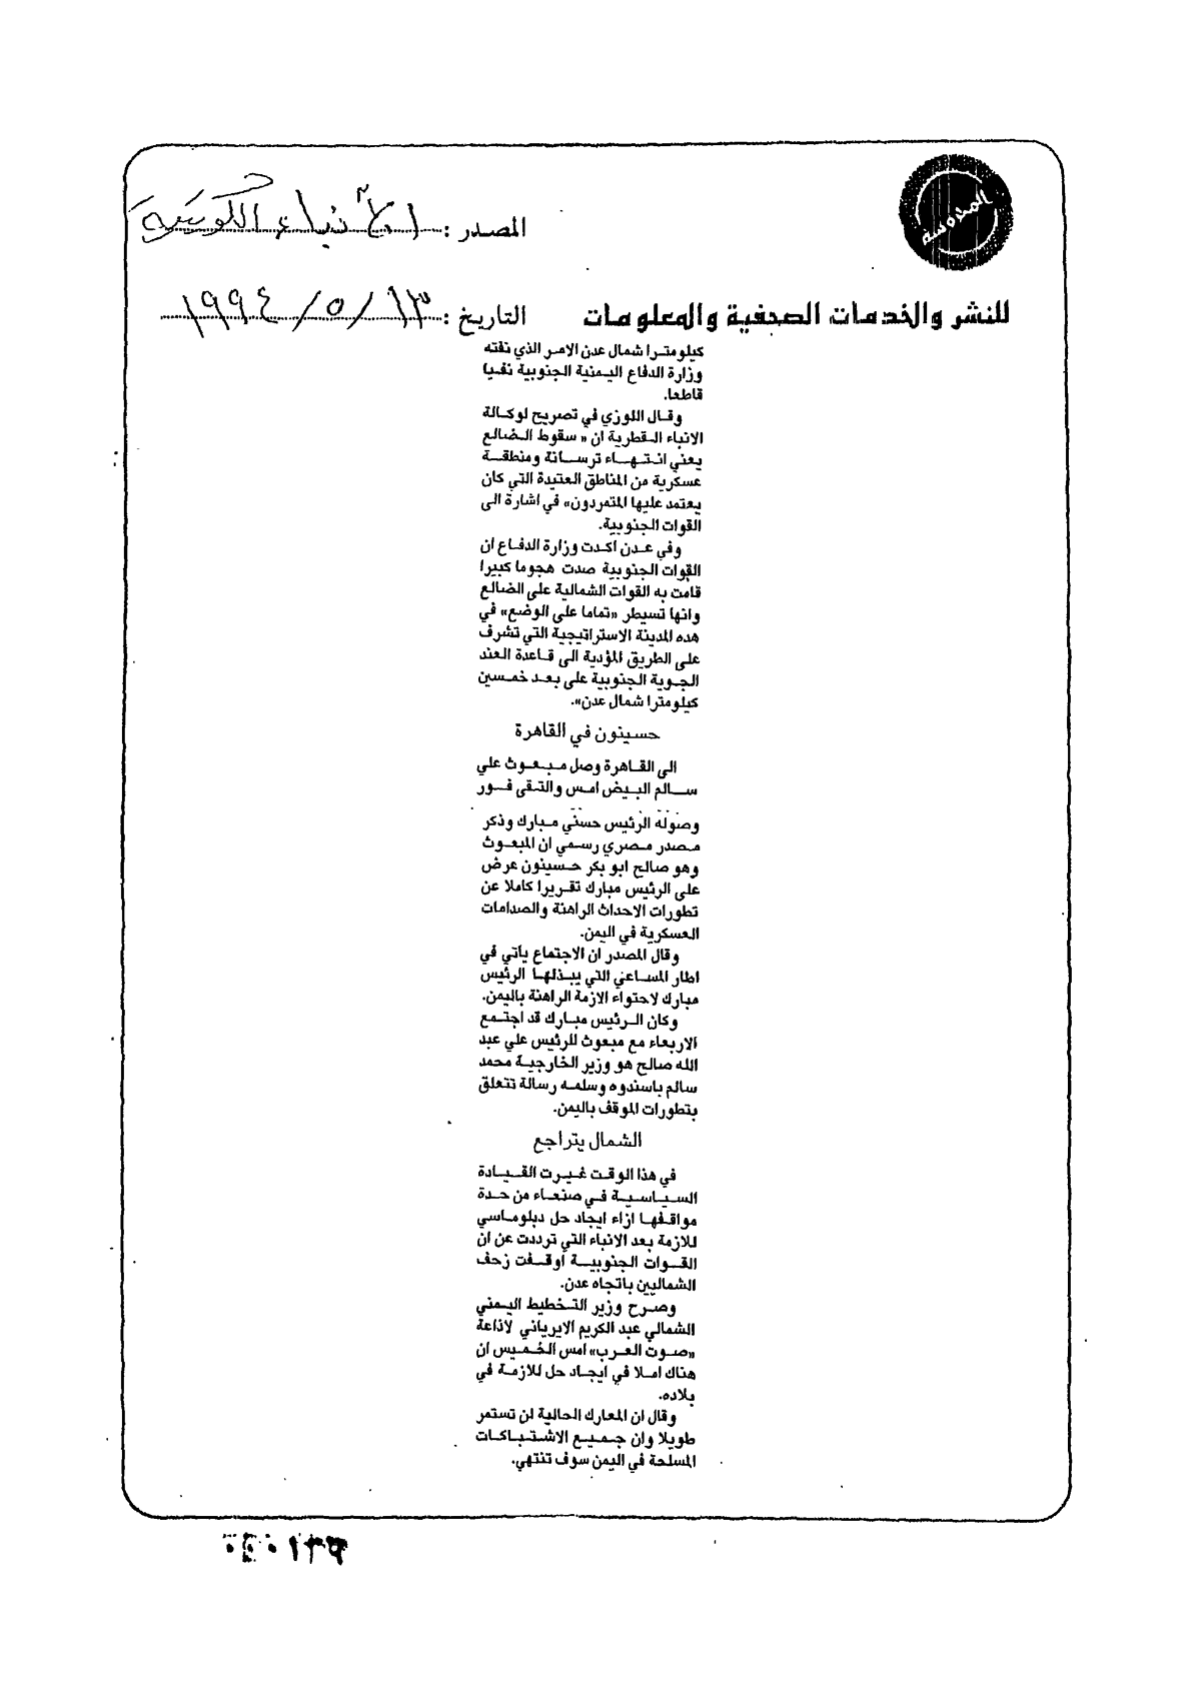 المصدر : الأنباء الكويتية
للنشر والخدمات الصحفية والمعلومات
التاريخ : ١٣ / ٥ / ١٩٩٤
كيلومترا شمال عدن الامر الذي نفته
وزارة الدفاع اليمنية الجنوبية نفيا
قاطعا.
وقال اللوزي في تصريح لوكالة
الانباء القطرية ان « سقوط الضالع
يعني انتهاء ترسانة ومنطقة
عسكرية من المناطق العتيدة التي كان
يعتمد عليها المتمردون» في اشارة الى
القوات الجنوبية.
وفي عدن اكدت وزارة الدفاع ان
القوات الجنوبية صدت هجوما كبيرا
قامت به القوات الشمالية على الضالع
وانها تسيطر «تماما على الوضع» في
هذه المدينة الاستراتيجية التي تشرف
على الطريق المؤدية الى قاعدة العند
الجوية الجنوبية على بعد خمسين
كيلومترا شمال عدن».
حسينون في القاهرة
الى القاهرة وصل مبعوث علي
سالم البيض امس والتقى فور
وصوله الرئيس حسني مبارك وذكر
مصدر مصري رسمي ان المبعوث
وهو صالح ابو بكر حسينون عرض
على الرئيس مبارك تقريرا كاملا عن
تطورات الاحداث الراهنة والصدامات
العسكرية في اليمن.
وقال المصدر ان الاجتماع يأتي في
اطار المساعي التي يبذلها الرئيس
مبارك لاحتواء الازمة الراهنة باليمن.
وكان الرئيس مبارك قد اجتمع
الاربعاء مع مبعوث للرئيس علي عبد
الله صالح هو وزير الخارجية محمد
سالم باسندوه وسلمه رسالة تتعلق
بتطورات الموقف باليمن.
الشمال يتراجع
في هذا الوقت غيرت القيادة
السياسية في صنعاء من حدة
مواقفها ازاء ايجاد حل دبلوماسي
للازمة بعد الانباء التي ترددت عن ان
القوات الجنوبية اوقفت زحف
الشماليين باتجاه عدن.
وصرح وزير التخطيط اليمني
الشمالي عبد الكريم الايرياني لاذاعة
«صوت العرب» امس الخميس ان
هناك املا في ايجاد حل للازمة في
بلاده.
وقال ان المعارك الحالية لن تستمر
طويلا وان جميع الاشتباكات
المسلحة في اليمن سوف تنتهي.